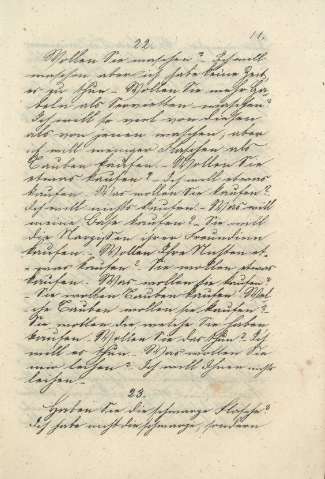 11.
22.
Wollen Sie waschen? Ich will
waschen aber ich habe keine Zeit
es zu thun. - Wollen Sie mehr Ga-
beln als Servietten waschen?
Ich will so viel von diesen
als von jenen waschen, aber
ich will weniger Flaschen als
Tauben kaufen. - Wollen Sie
etwas kaufen? - Ich will etwas
kaufen. Was wollen Sie kaufen?
Ich will nichts kaufen. - Was will
meine Base kaufen? - Sie will
die Narzissen ihrer Freundinn
kaufen. - Wollen Ihre Nichten et-
was kaufen? Sie wollen etwas
kaufen. - Was wollen sie kaufen?
- Sie wollen Tauben kaufen. Wel-
che Tauben wollen sie kaufen?
Sie wollen die welche Sie haben
kaufen. Wollen Sie das thun? Ich
will es thun. - Was wollen Sie
mir leihen? Ich will Ihnen nichts
leihen. -
23.
Haben Sie die schwarze Flasche?
Ich habe nicht die schwarze, sondern